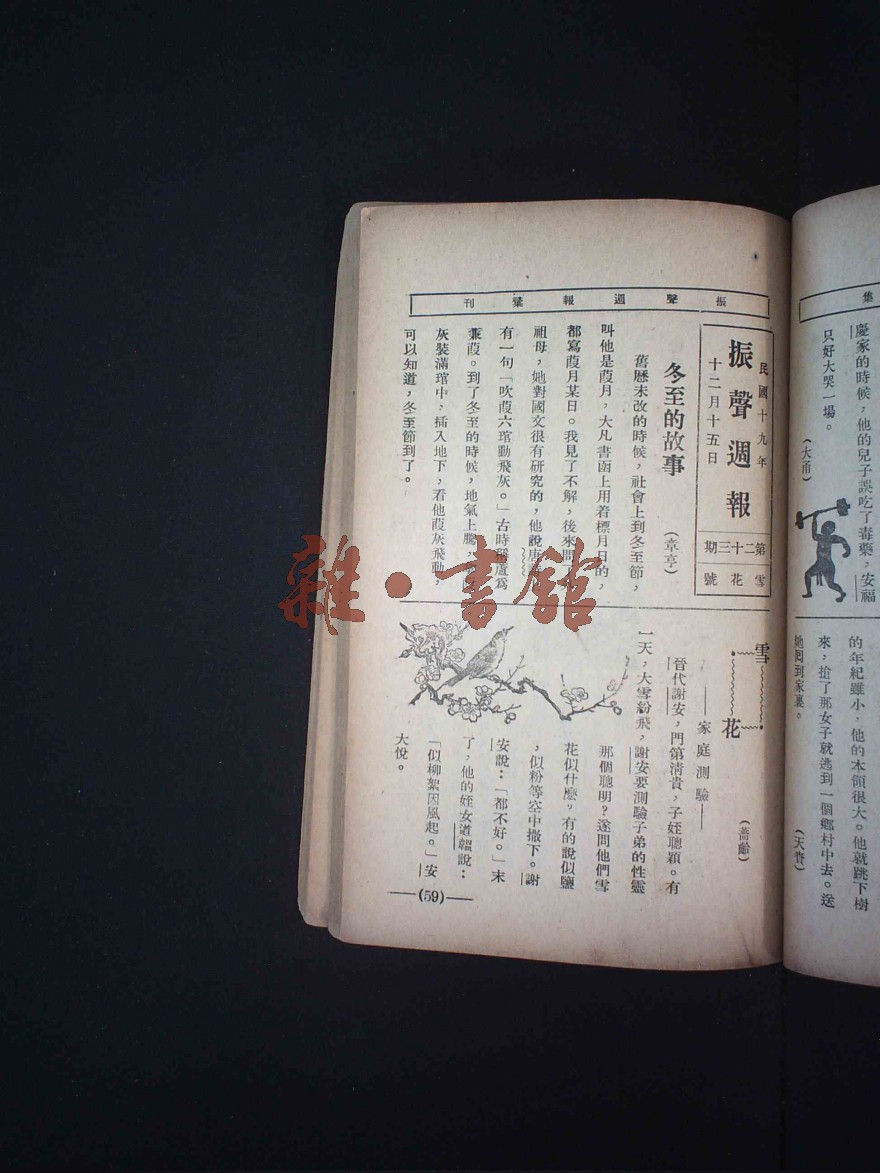 振聲週報彙刊
民國十九年
十二月十五日
振聲週報
第二十三期
雪花號
冬至的故事
(章亨)
舊歷未改的時候，社會上到冬至節，
叫他是葭月，大凡書函上用着標月日的，
都寫葭月某日。我見了不解，後來問了
祖母，她對國文很有研究的，他說唐
有一句「吹葭六琯動飛灰。」古時稱蘆爲
蒹葭。到了冬至的時候，地氣上騰，
灰裝滿琯中，插入地下，看他葭灰飛動，
可以知道，冬至節到了。
雪花
——家庭測驗——
(薔齡)
晉代謝安，門第清貴，子姪聰穎。有
一天，大雪紛飛，謝安要測驗子弟的性靈
那個聰明？遂問他們雪
花似什麼，有的說似鹽
，似粉等空中撒下。謝
安說：「都不好。」末
了，他的姪女道韞說：
「似柳絮因風起。」安
大悅。
—(59)—
集
慶家的時候，他的兒子誤吃了毒藥，安福
只好大哭一場。
的年紀雖小，他的本領很大。他就跳下樹
來，搶了那女子就逃到一個鄉村中去。送
她回到家裏。
(天賚)
雜·書館